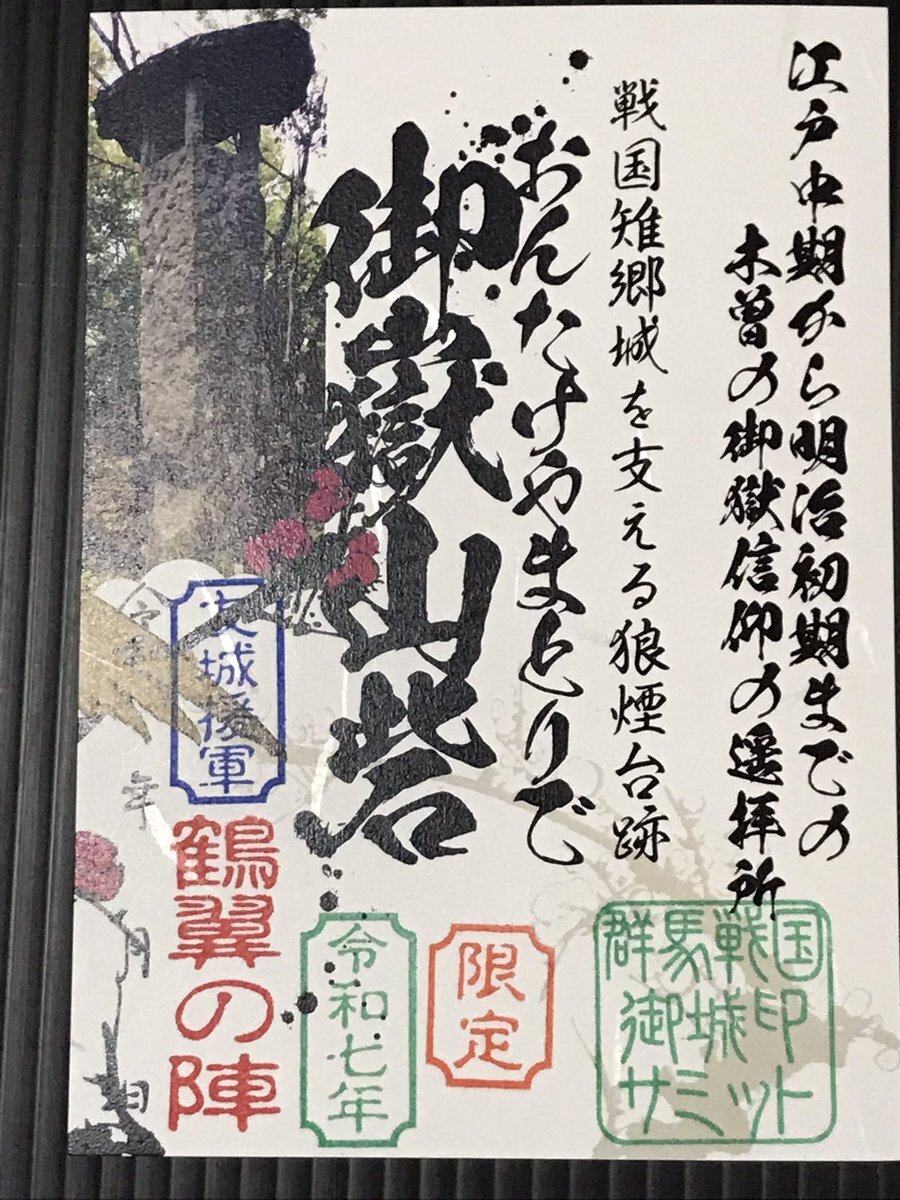 江戸中期から明治初期までの
木曽の御嶽信仰の遥拝所
戦国雉郷城を支える狼煙台跡
おんたけやまとりで
御嶽山砦
群馬戦国
御城印
サミット
限定
令和七年
城援軍
鶴翼の陣
令和 年 月 日